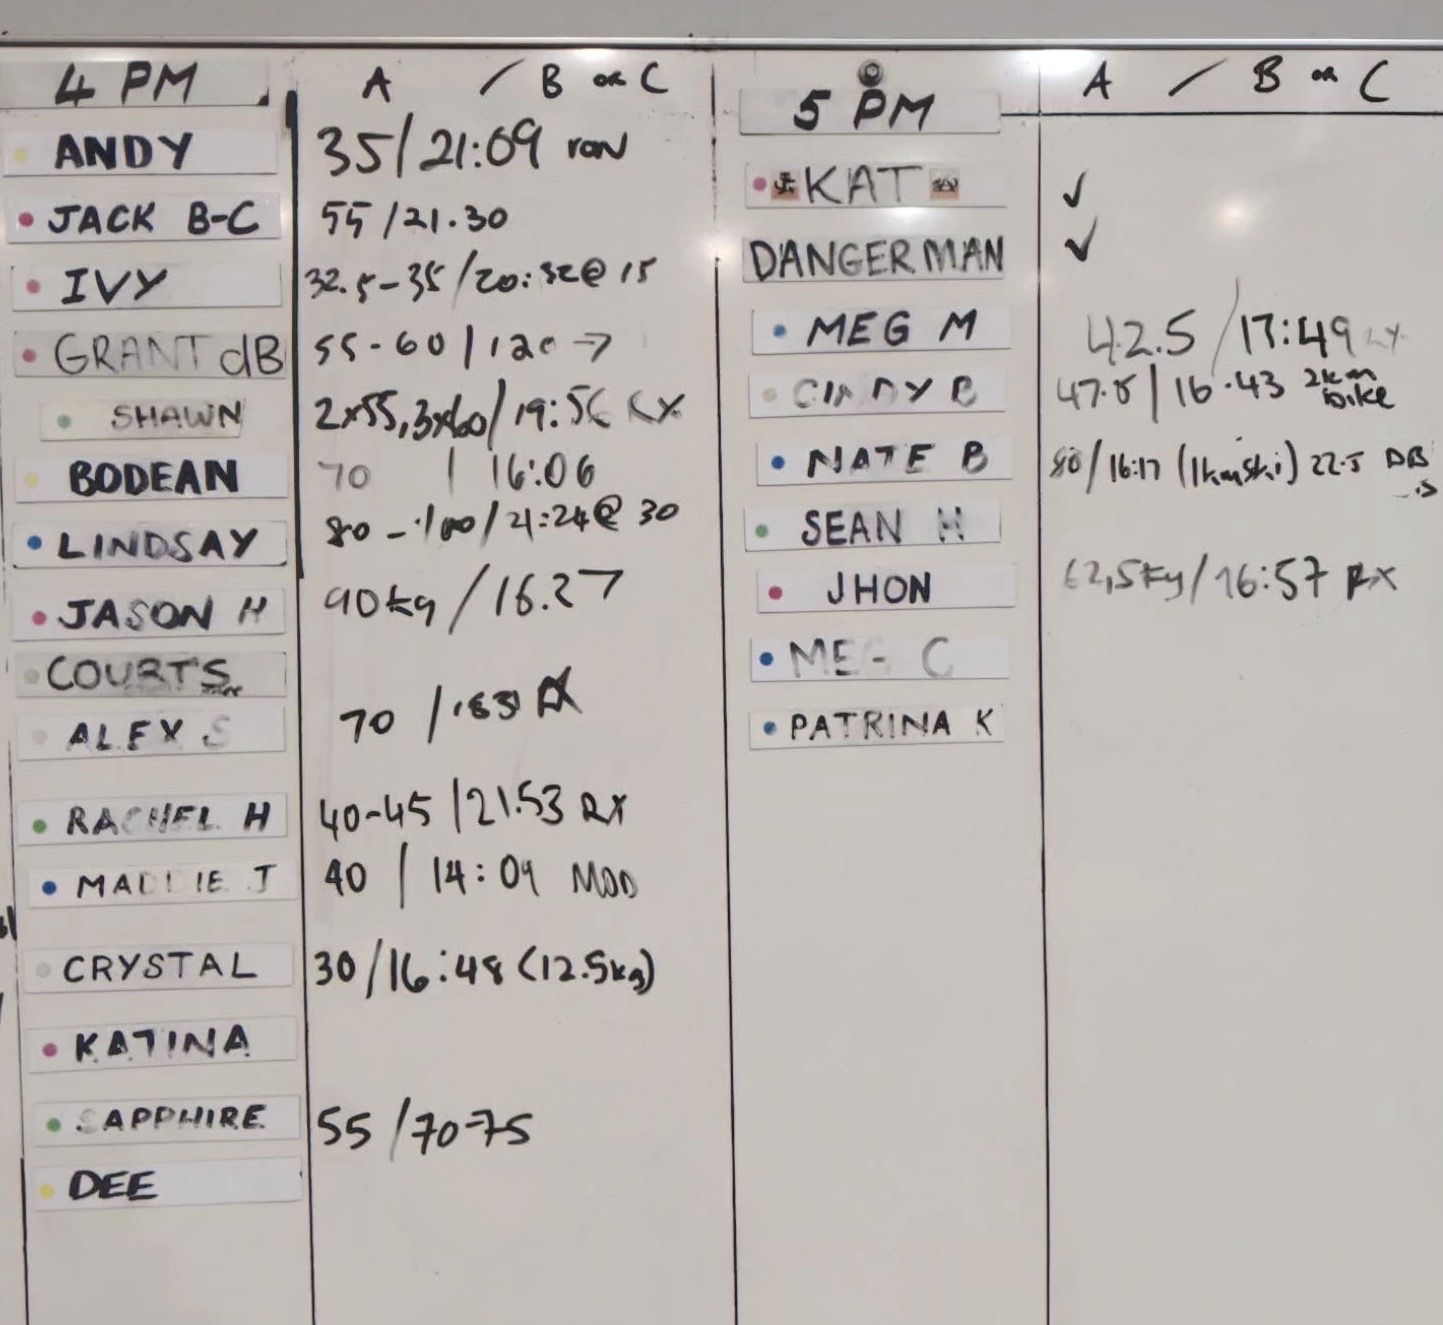 4 PM A / B or C
ANDY 35/21:09 row
JACK B-C 55/21.30
IVY 32.5-35/20:32@ 15
GRANT dB 55-60 | 120 →
SHAWN 2x55,3x60/19:56 RX
BODEAN 70 | 16:06
LINDSAY 80-100/21:24@ 30
JASON H 90kg/16.27
COURTS
ALEX S 70 / RX
RACHEL H 40-45 | 21.53 RX
MADDIE J 40 | 14:09 MOD
CRYSTAL 30/16:48 (12.5kg)
KATINA
SAPPHIRE 55/70-75
DEE
5 PM A / B or C
KAT ✓
DANGERMAN ✓
MEG M 42.5/17:49
CINDY B 47.5 | 16.43 2km bike
NATE B 80/16:17 (1km ski) 22.5 DB
SEAN H
JHON 62,5kg/16:57 RX
MEG C
PATRINA K